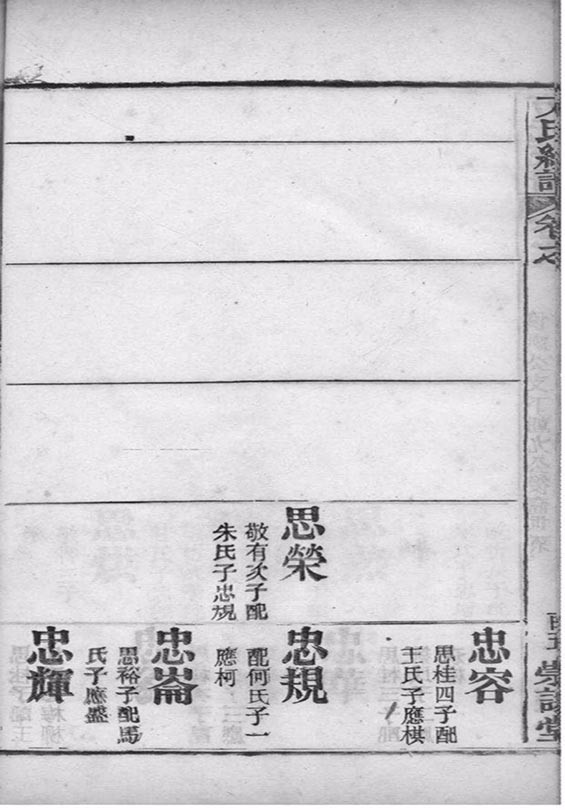 卷之
思榮
敬有次子配
朱氏子忠規
忠容
思桂四子配
王氏子應棋
忠規
配何氏子一
應柯
忠崙
思裕子配馬
氏子應盛
忠輝